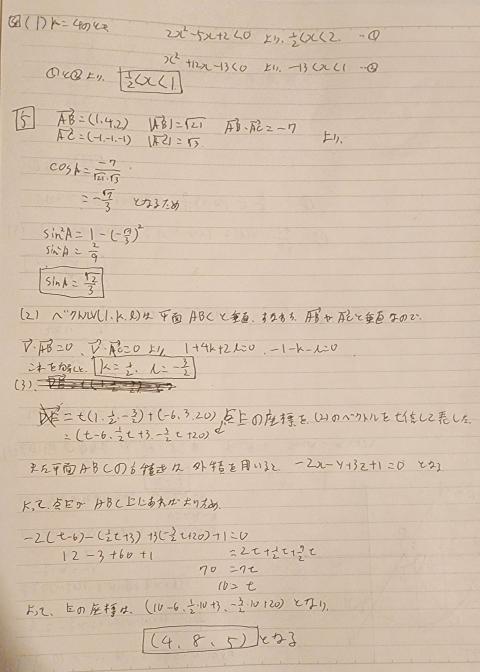 (1) k=4のとき 2x²-5x+2<0 より, 1/2<x<2 …①
x²+12x-13<0 より, -13<x<1 …②
①と②より, 1/2<x<1
5 AB→=(1,4,2) |AB→|=√21 AB→・AC→=-7
AC→=(-1,-1,-1) |AC→|=√3 より,
cosA=-7/√21・√3
=-√7/3 となるため
sin²A=1-(-√7/3)²
sin²A=2/9
sinA=√2/3
(2) ベクトルV(1,k,l)は平面ABCと垂直,すなわち AB→やAC→と垂直なので,
V→・AB→=0, V→・AC→=0 より, 1+4k+2l=0, -1-k-l=0
これを解くと, k=1/2, l=-3/2
(3)
=t(1,1/2,-3/2)+(-6,3,20)
点Eの座標を(2)のベクトルをt倍して表した
=(t-6,1/2t+3,-3/2t+20)
また平面ABCの方程式は外積を用いると -2x-y+3z+1=0 となる
よって,点EがABC上にあればよいため,
-2(t-6)-(1/2t+3)+3(-3/2t+20)+1=0
12-3+60+1 =2t+1/2t+9/2t
70=7t
10=t
よって,Eの座標は,(10-6,1/2・10+3,-3/2・10+20)となり,
(4,8,5)となる